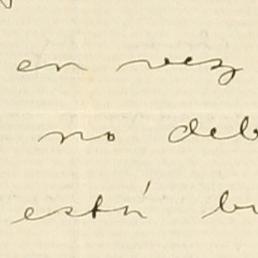 en vez
no deb
está b